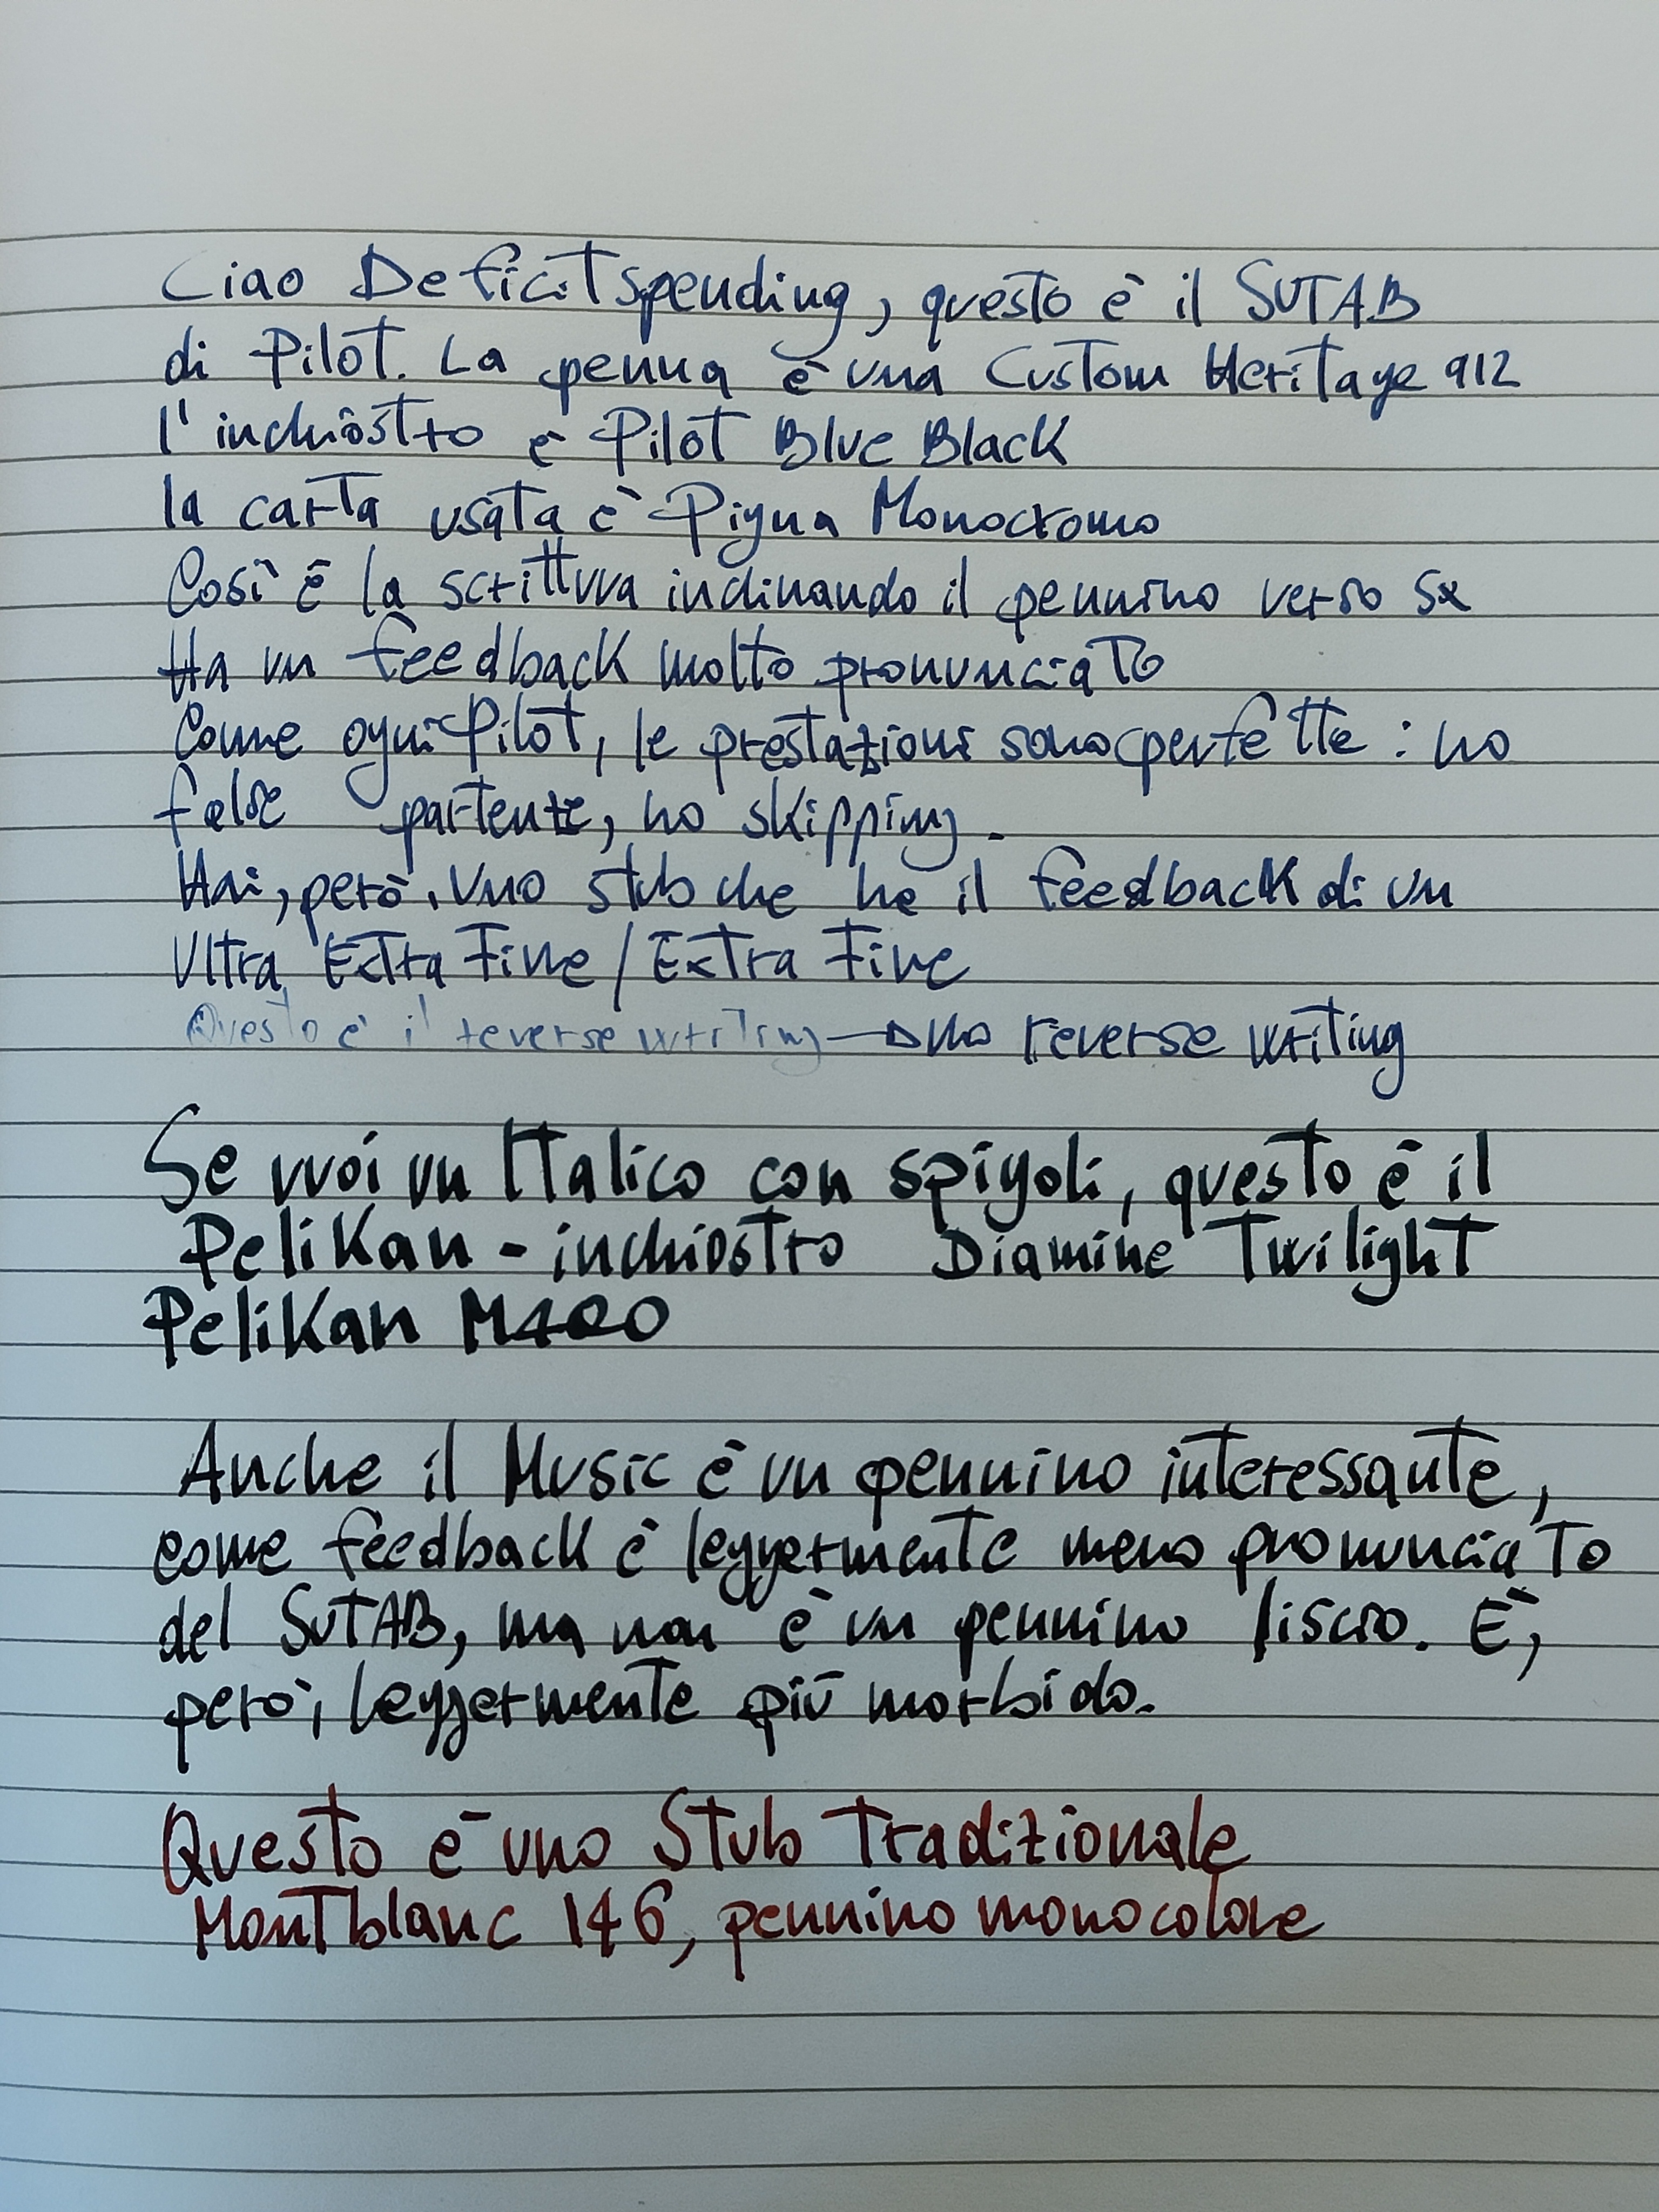 Ciao Deficitspending, questo è il SUTAB
di Pilot. La penna è una Custom Heritage 912
l'inchiostro è Pilot Blue Black
la carta usata è Pigna Monocromo
Così è la scrittura inclinando il pennino verso sx
Ha un feedback molto pronunciato
Come ogni Pilot, le prestazioni sono perfette: no
false partenze, no skipping.
Hai, però, uno stub che ha il feedback di un
Ultra Extra Fine / Extra Fine
Questo è il reverse writing → no reverse writing
Se vuoi un Italico con spigoli, questo è il
Pelikan - inchiostro Diamine Twilight
Pelikan M400
Anche il Music è un pennino interessante,
come feedback è leggermente meno pronunciato
del SUTAB, ma non è un pennino liscio. È,
però, leggermente più morbido.
Questo è uno Stub Tradizionale
Montblanc 146, pennino monocolore